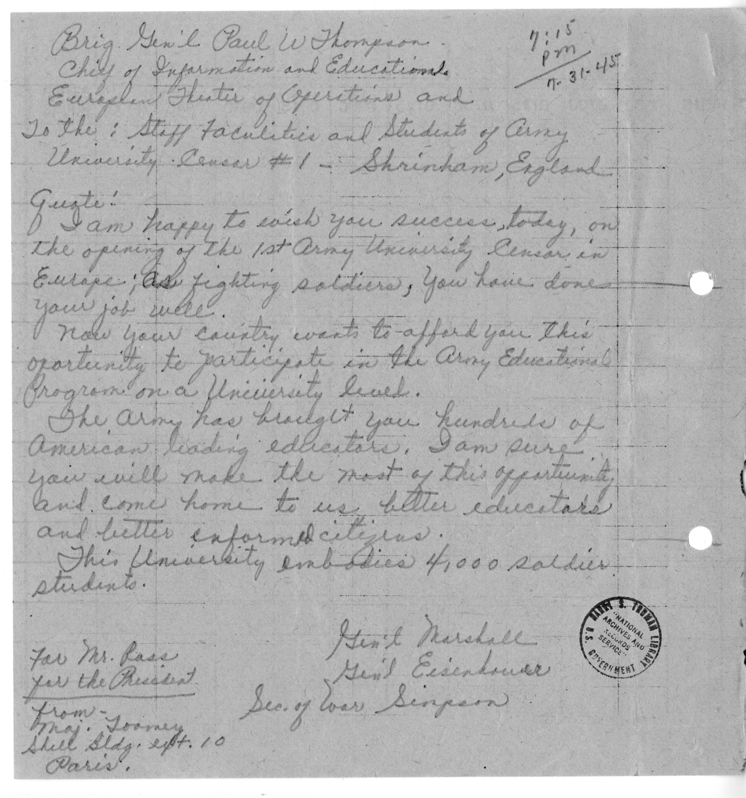 Brig. Gen'l Paul W Thompson.
Chief of Information and Educational.
European Theater of Operations and
To the: Staff Faculities and Students of Army
University Censar #1 - Shrinham, England
7:15
pm
7-31-45
Quote:
I am happy to wish you success, today, on
the opening of the 1st Army University Censar, in
Europe; as fighting soldiers, you have done
your job well.
Now your country wants to afford you this
oportunity to participate in the Army Educational
Program on a University level.
The Army has brought you hundreds of
American leading educators. I am sure
you will make the most of this opportunity
and come home to us better educators
and better informed citizens.
This University embodies 4,000 soldier
students.
Gen'l Marshall
Gen'l Eisenhower
Sec. of War Simpson
For Mr. Ross
for the President
from-
Maj. Toomey
Shell Bldg. ext. 10
Paris.
HARRY S. TRUMAN LIBRARY
"NATIONAL
ARCHIVES AND
RECORDS
SERVICE"
U.S. GOVERNMENT